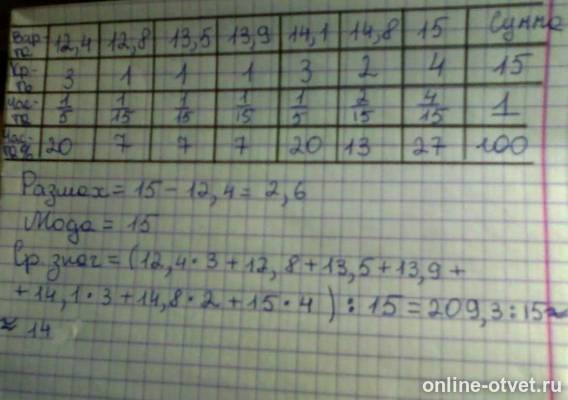 Вар-та 12,4 12,8 13,5 13,9 14,1 14,8 15 Сумма
Кр-та 3 1 1 1 3 2 4 15
Час-та 1/5 1/15 1/15 1/15 1/5 2/15 4/15 1
Час-та % 20 7 7 7 20 13 27 100
Размах = 15 - 12,4 = 2,6
Мода = 15
Ср. знач = (12,4·3 + 12,8 + 13,5 + 13,9 +
+ 14,1·3 + 14,8·2 + 15·4) : 15 = 209,3 : 15 ≈
≈ 14
online-otvet.ru